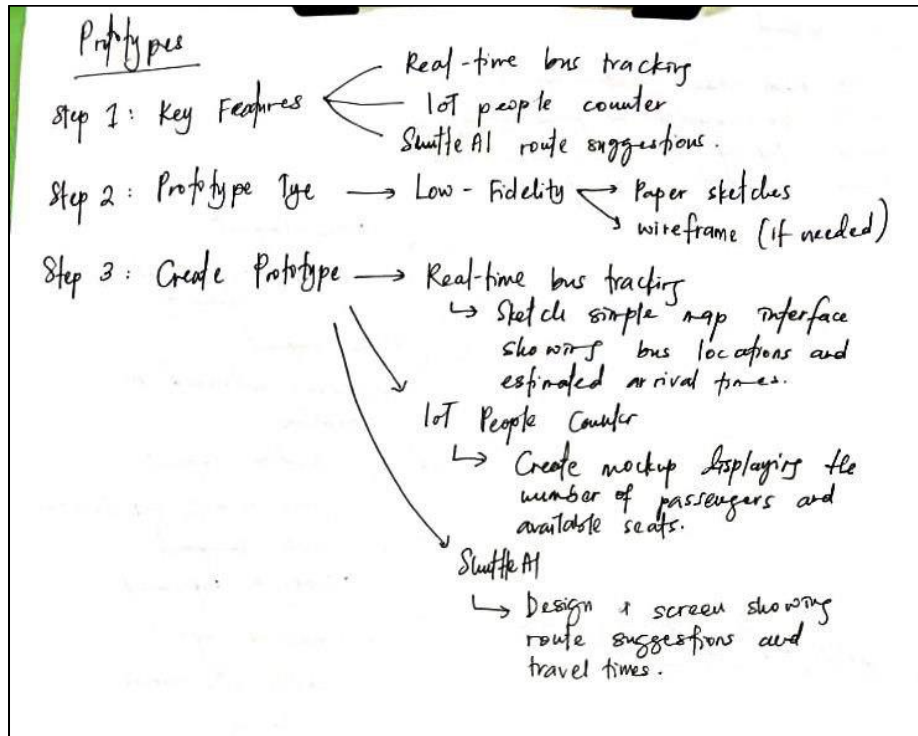 Prototypes
Real-time bus tracking
Step 1: Key Features
IoT people counter
ShuttleAI route suggestions.
Step 2: Prototype Type → Low-Fidelity → Paper sketches
wireframe (if needed)
Step 3: Create Prototype → Real-time bus tracking
↳ Sketch simple map interface
showing bus locations and
estimated arrival times.
IoT People Counter
↳ Create mockup displaying the
number of passengers and
available seats.
ShuttleAI
↳ Design a screen showing
route suggestions and
travel times.